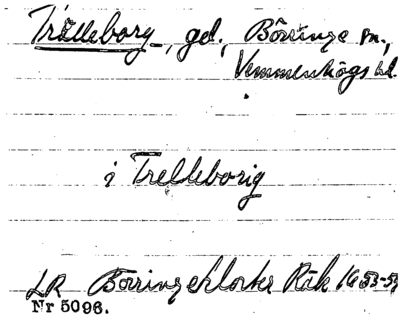 Trälleborg, gd., Börringe sn.,
Vemmenhögs hd.
i Trelleborig
LR Börringekloster Räk 1653-
Nr 5096.